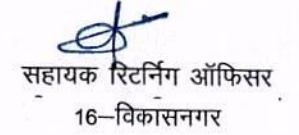 सहायक रिटर्निंग ऑफिसर
16–विकासनगर